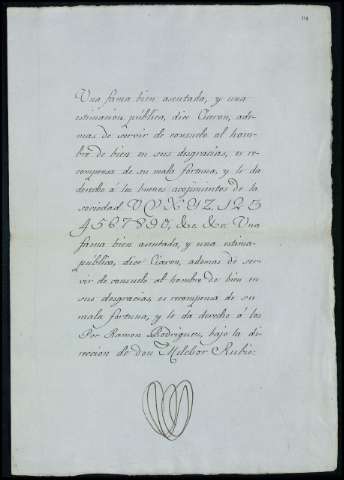 Una fama bien asentada, y una
estimacion pública, dice Ciceron, ade-
mas de servir de consuelo al hom-
bre de bien en sus desgracias, es re-
compensa de su mala fortuna, y le da
derecho á los buenos acogimientos de la
sociedad. V Q X Y Z. 1 2 3
4 5 6 7 8 9 0, &c. &c. Una
fama bien asentada, y una estima-
pública, dice Ciceron, ademas de ser-
vir de consuelo al hombre de bien en
sus desgracias, es recompensa de su
mala fortuna, y le da derecho á los
Por Ramon Rodriguez, bajo la di-
reccion de don Melchor Rubio.